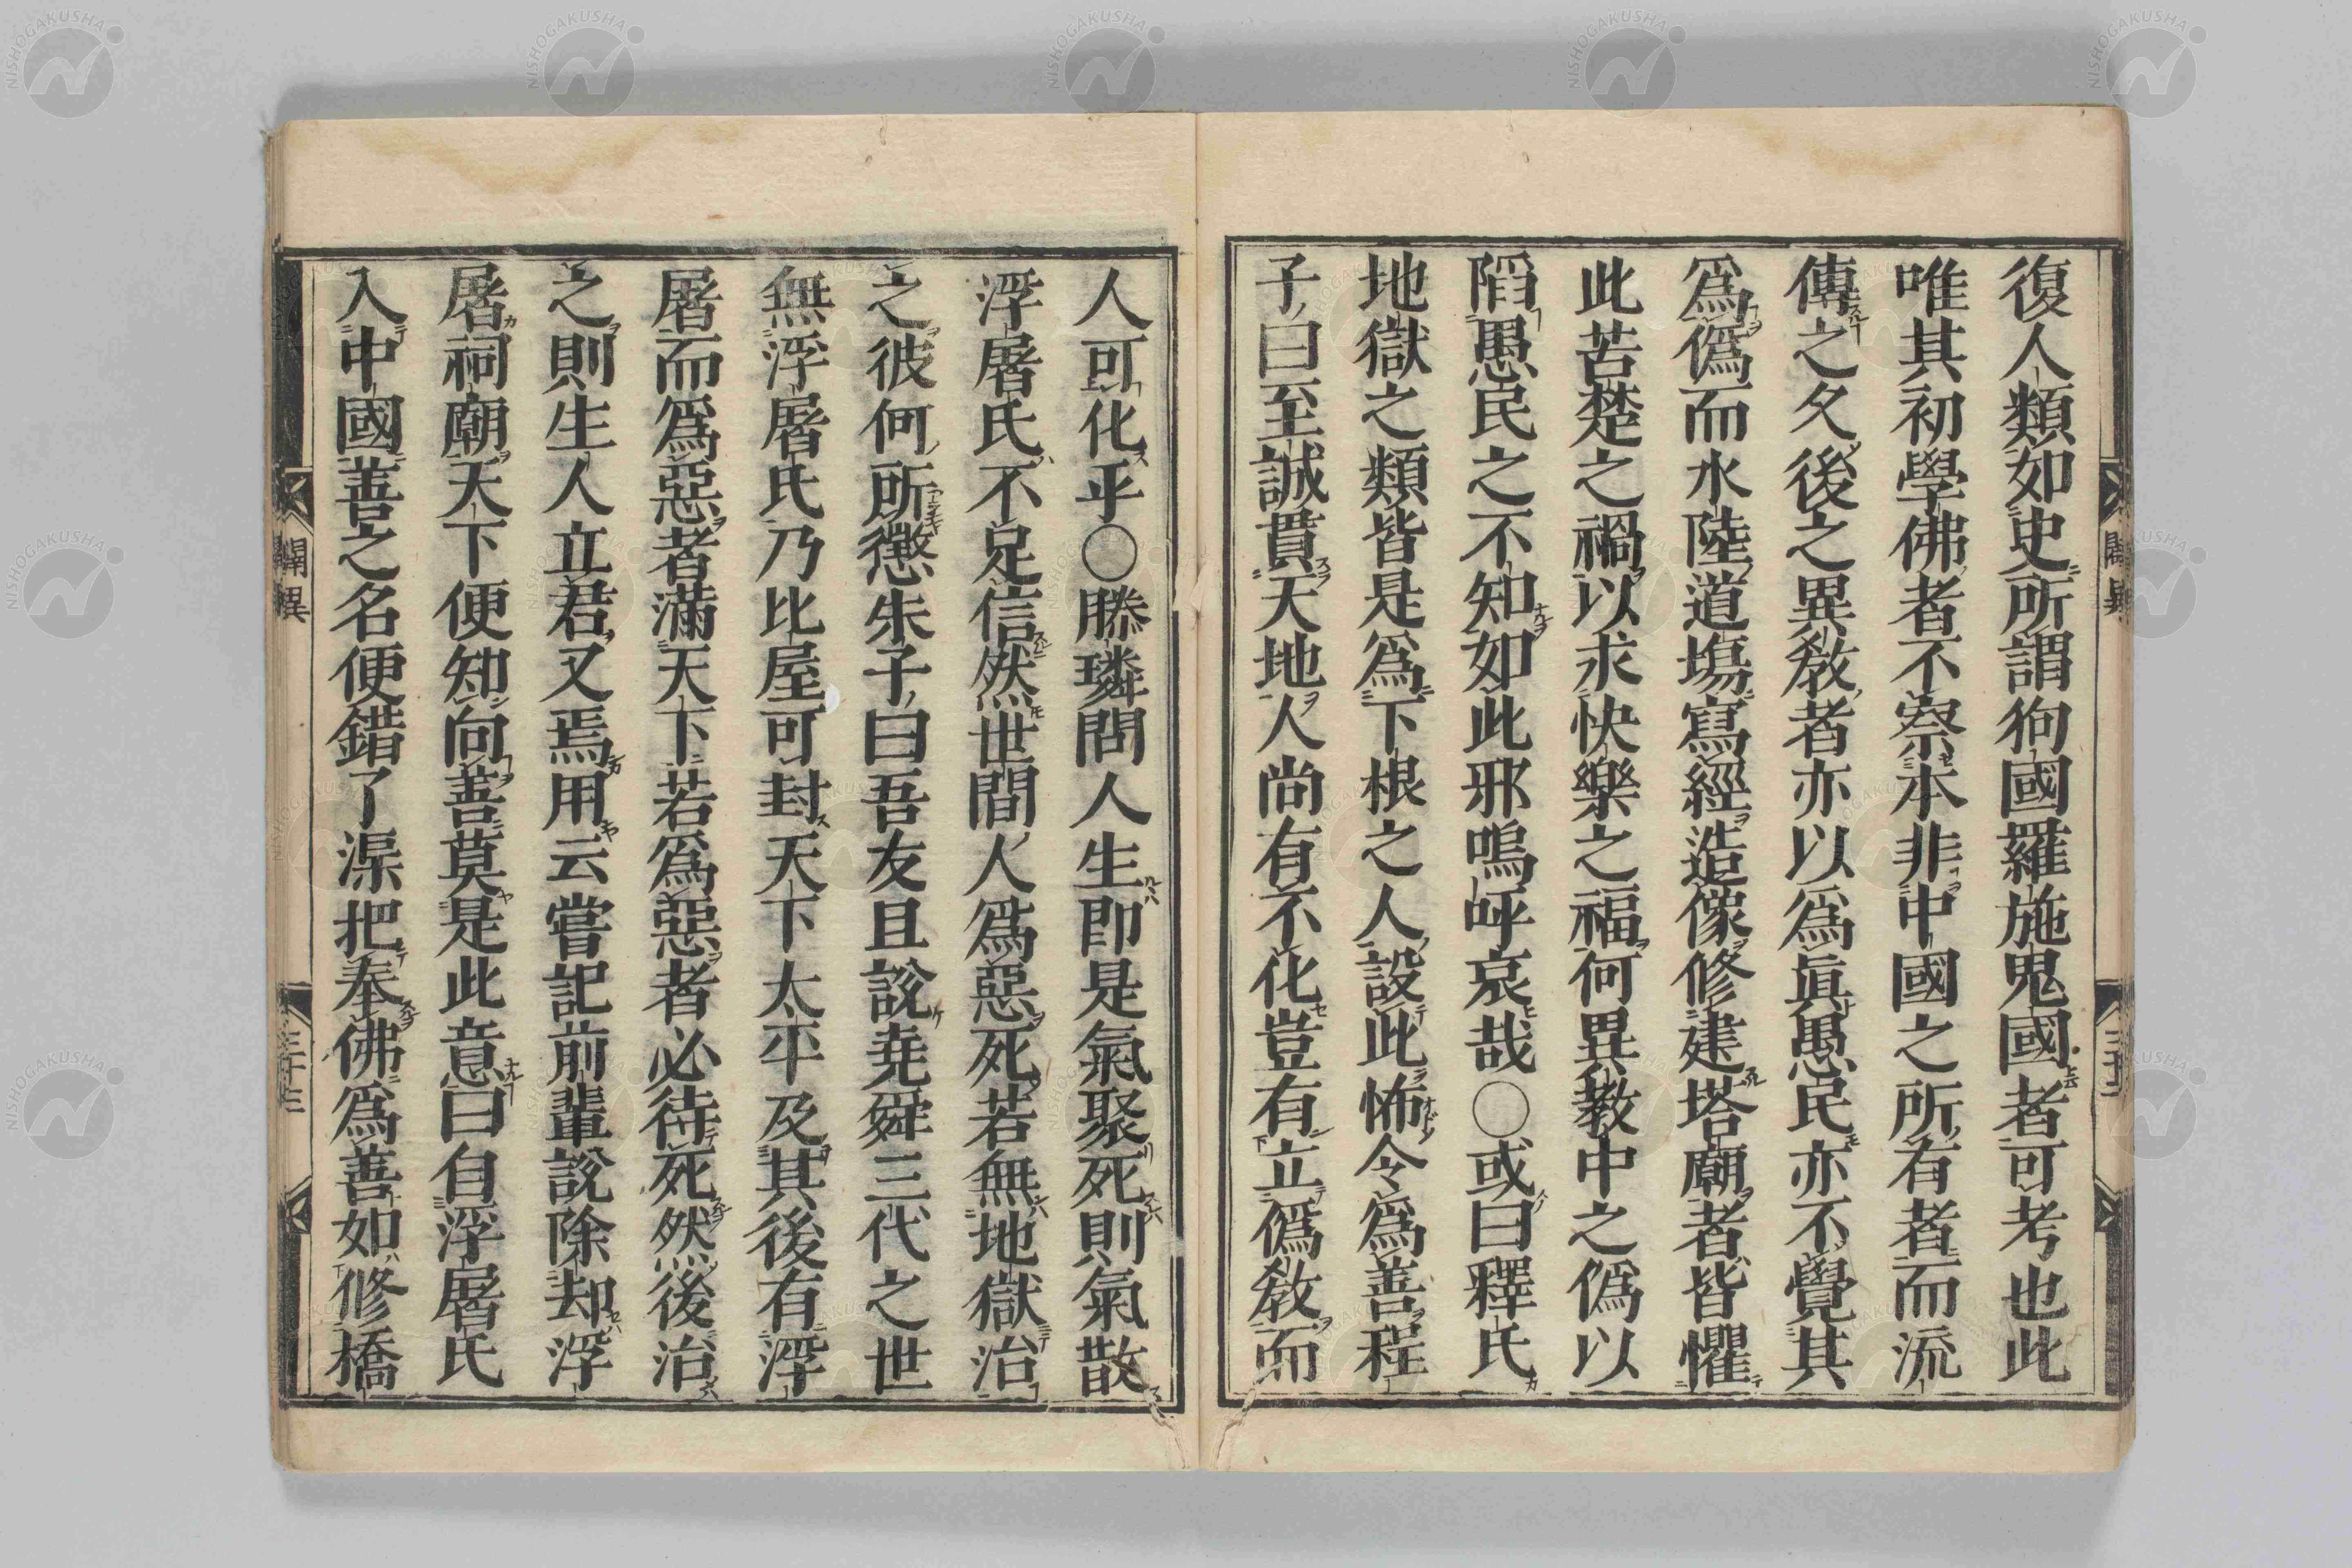 復人類如史所謂狗國羅施鬼國者可考也此
唯其初學佛者不察本非中國之所有者而流
傳之久後之異教者亦以爲眞愚民亦不覺其
爲偽而水陸道場寫經造像修建塔廟者皆懼
此苦楚之禍以求快樂之福何異教中之偽以
陷愚民之不知如此邪嗚呼哀哉〇或曰釋氏
地獄之類皆是爲下根之人設此怖令爲善程
子曰至誠貫天地人尚有不化豈有立偽教而
人可化乎〇滕璘問人生即是氣聚死則氣散
浮屠氏不足信然世間人爲惡死若無地獄治
之彼何所懲朱子曰吾友且說堯舜三代之世
無浮屠氏乃比屋可封天下太平及其後有浮
屠而爲惡者滿天下若爲惡者必待死然後治
之則生人立君又焉用云嘗記前輩說除却浮
屠祠廟天下便知向善莫是此意曰自浮屠氏
入中國善之名便錯了渠把奉佛爲善如修橋
闢異
三十三
NISHOGAKUSHA